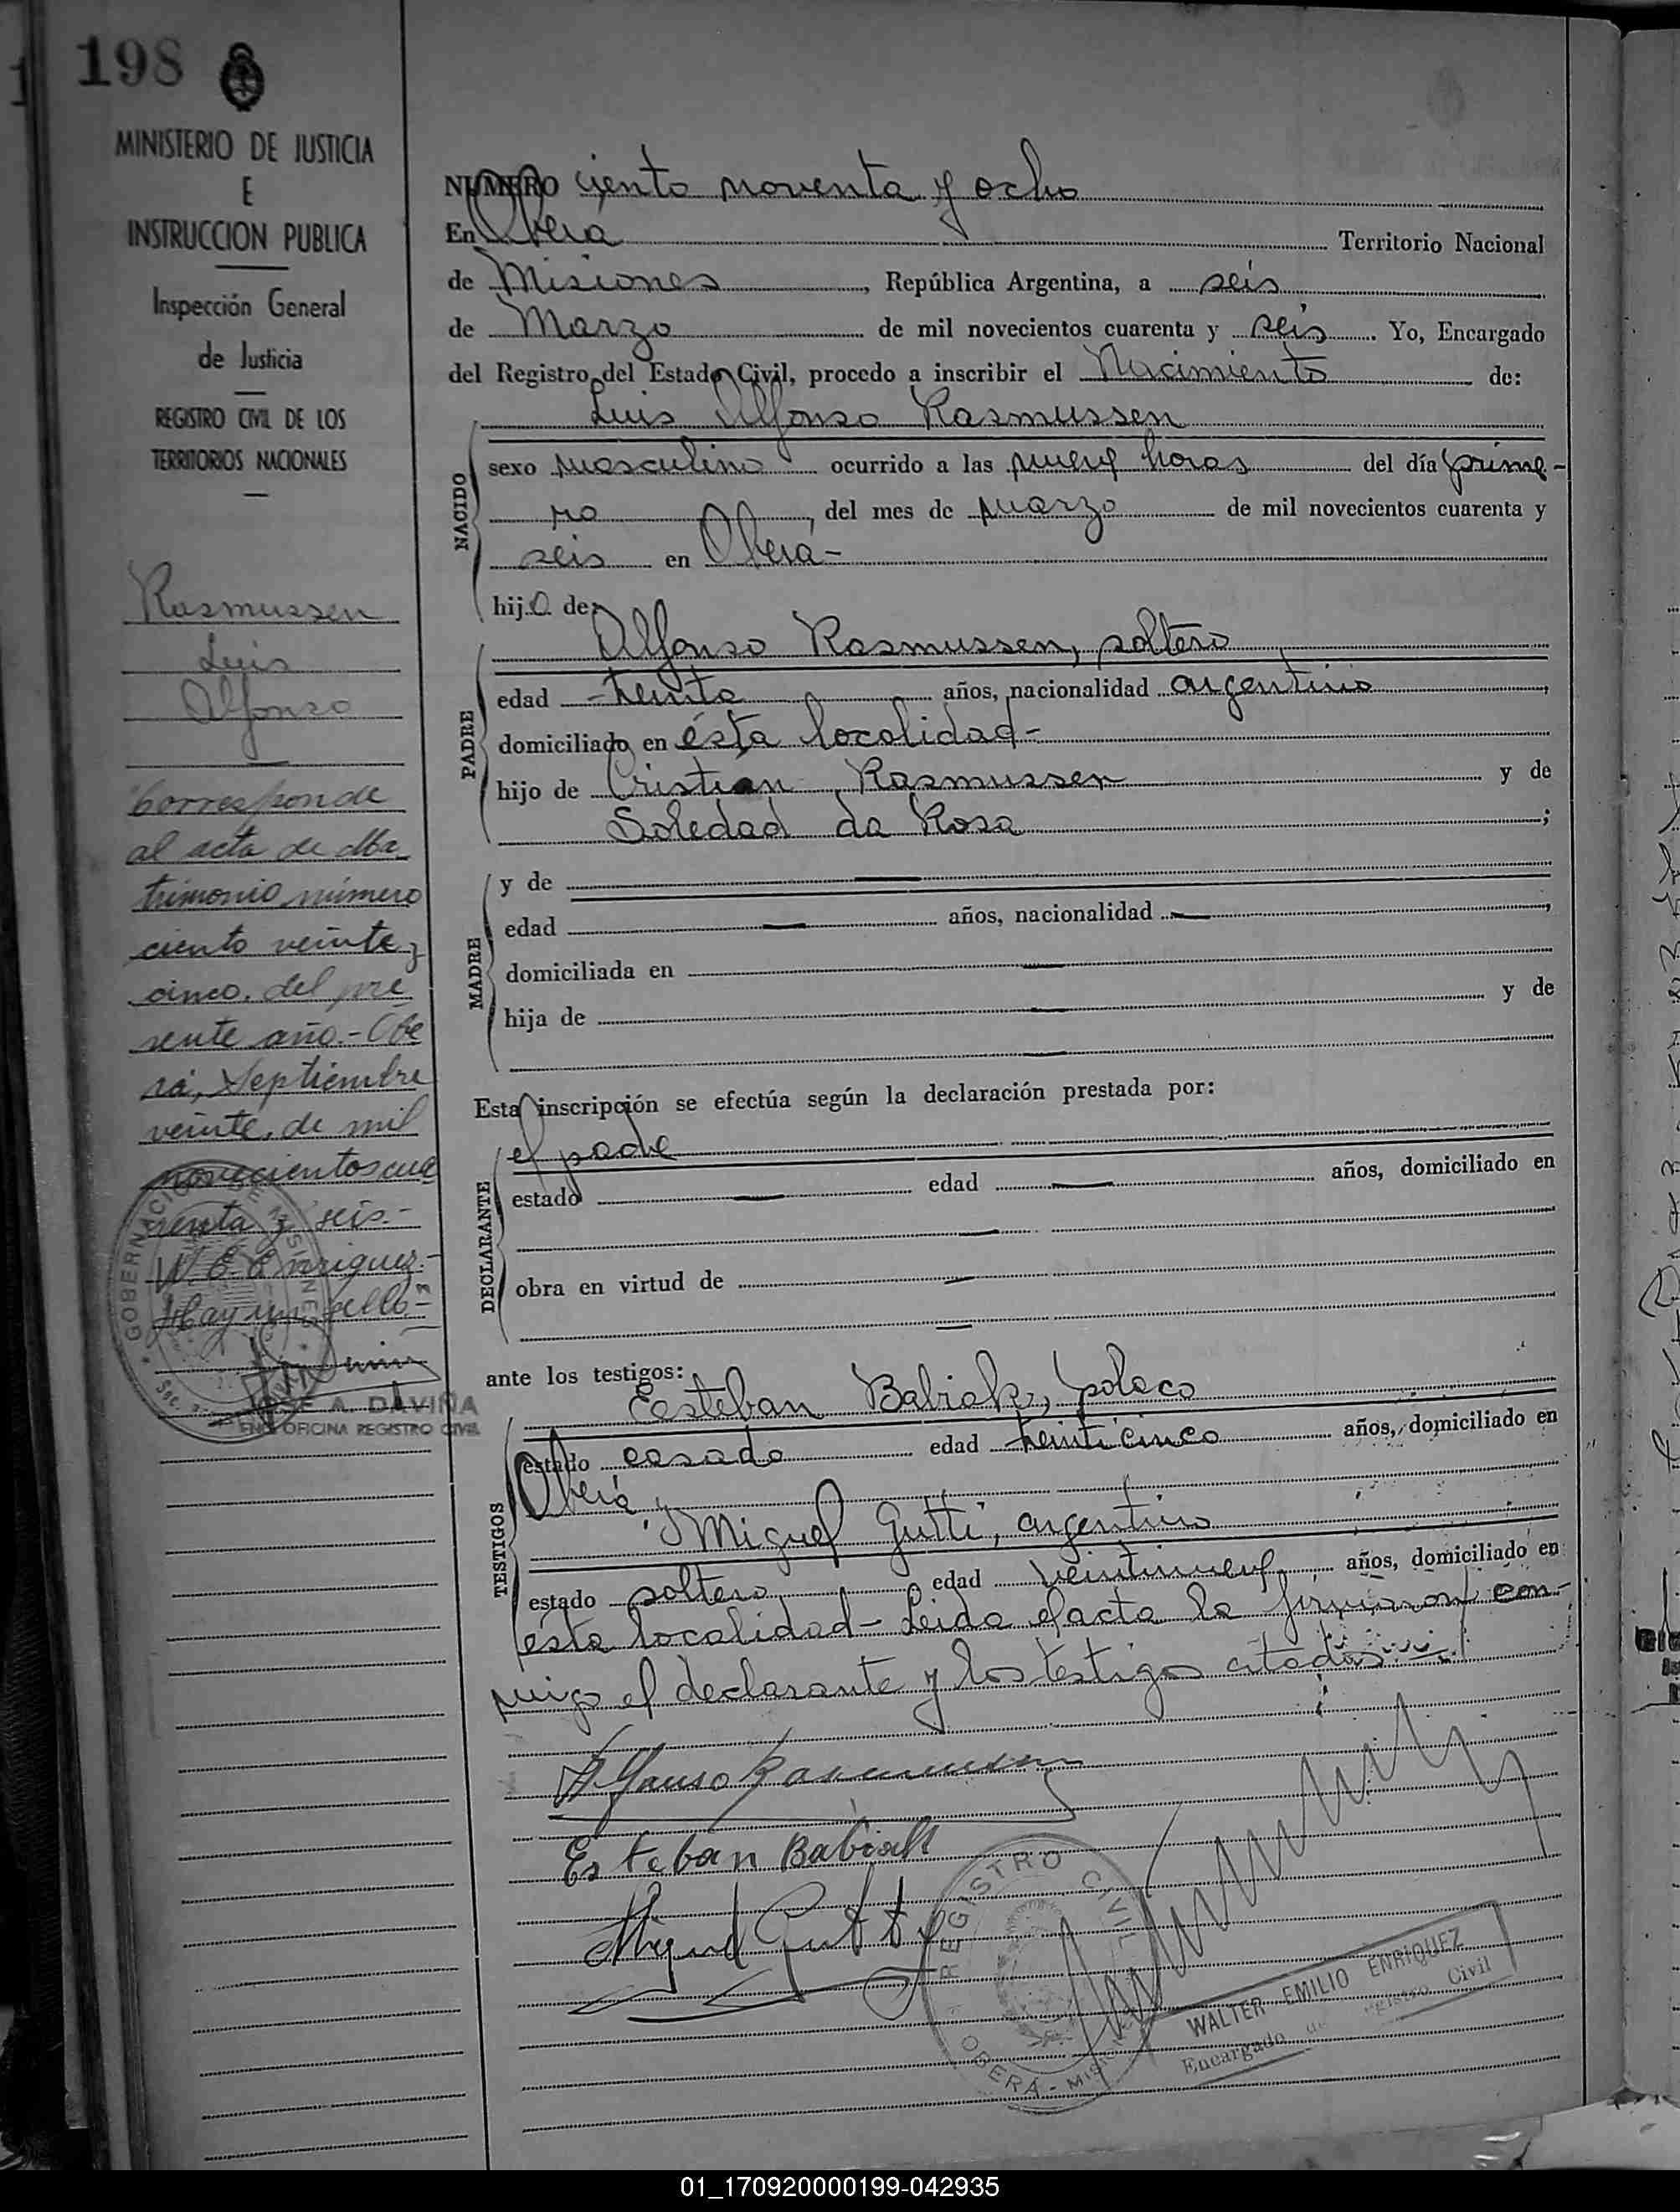 198
MINISTERIO DE JUSTICIA
E
INSTRUCCION PUBLICA
Inspección General
de Justicia
REGISTRO CIVIL DE LOS
TERRITORIOS NACIONALES
Rasmussen
Luis
Alfonso
Corresponde
al acta de Ma
trimonio número
ciento veinte y
cinco, del pre
sente año.- Obe
rá, Septiembre
veinte, de mil
novecientos cua
renta y seis.-
W. E. Enriquez.-
Hay un sello-
GOBERNACION DE MISIONES
JOSE A. DAVIÑA
ENC. OFICINA REGISTRO CIVIL
NUMERO ciento noventa y ocho
En Oberá Territorio Nacional
de Misiones, República Argentina, a seis
de Marzo de mil novecientos cuarenta y seis. Yo, Encargado
del Registro del Estado Civil, procedo a inscribir el Nacimiento de:
Luis Alfonso Rasmussen
NACIDO
sexo masculino ocurrido a las nueve horas del día prime-
ro, del mes de marzo de mil novecientos cuarenta y
seis en Oberá-
hijo de
Alfonso Rasmussen, soltero
PADRE
edad treinta años, nacionalidad argentino,
domiciliado en ésta localidad-
hijo de Cristian Rasmussen y de
Soledad da Rosa;
MADRE
y de —
edad — años, nacionalidad —,
domiciliada en —
hija de — y de
—
Esta inscripción se efectúa según la declaración prestada por:
el padre
DECLARANTE
estado — edad — años, domiciliado en
—
obra en virtud de —
—
ante los testigos:
Eesteban Babiak, polaco
TESTIGOS
estado casado edad treinticinco años, domiciliado en
Oberá y
Miguel Gutti, argentino
estado soltero edad veintinueve años, domiciliado en
ésta localidad- Leida el acta la firmaron con-
migo el declarante y los testigos citados
Alfonso Rasmussen
Esteban Babiak
Miguel Gutti
REGISTRO CIVIL
OBERÁ - MISIONES
WALTER EMILIO ENRIQUEZ
Encargado de Registro Civil
01_170920000199-042935